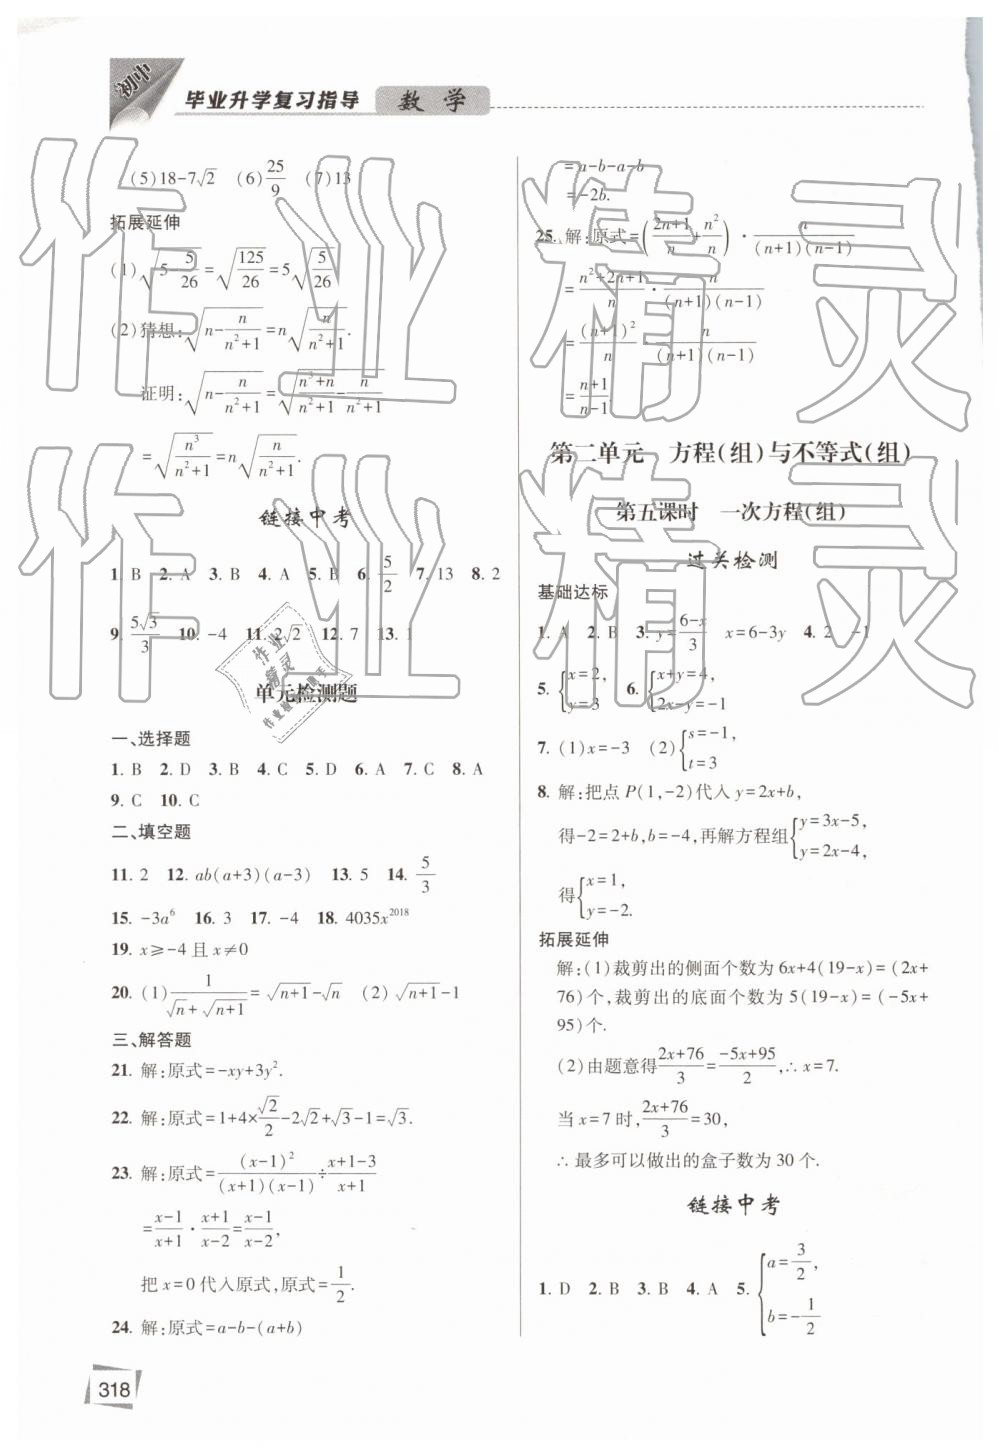 初中
毕业升学复习指导 数学
(5)18-7√2 (6)25/9 (7)13
拓展延伸
(1)√(5-5/26)=√(125/26)=5√(5/26)
(2)猜想:√(n-n/(n²+1))=n√(n/(n²+1)).
证明:√(n-n/(n²+1))=√((n³+n)/(n²+1)-n/(n²+1))
=√(n³/(n²+1))=n√(n/(n²+1))
链接中考
1. B 2. A 3. B 4. A 5. B 6. 5/2 7. 13 8. 2
9. 5√3/3 10. -4 11. 2√2 12. 7 13. 1
单元检测题
一、选择题
1. B 2. D 3. B 4. C 5. D 6. A 7. C 8. A
9. C 10. C
二、填空题
11. 2 12. ab(a+3)(a-3) 13. 5 14. 5/3
15. -3a⁶ 16. 3 17. -4 18. 4035x²⁰¹⁸
19. x≥-4且x≠0
20. (1)1/(√n+√(n+1))=√(n+1)-√n (2)√(n+1)-1
三、解答题
21. 解:原式=-xy+3y².
22. 解:原式=1+4×√2/2-2√2+√3-1=√3.
23. 解:原式=(x-1)²/((x+1)(x-1))÷(x+1-3)/(x+1)
=(x-1)/(x+1)·(x+1)/(x-2)=(x-1)/(x-2),
把x=0代入原式,原式=1/2.
24. 解:原式=a-b-(a+b)
318
=a-b-a-b
=-2b.
25. 解:原式=((2n+1)/n+n²/n)·n/((n+1)(n-1))
=(n²+2n+1)/n·n/((n+1)(n-1))
=(n+1)²/n·n/((n+1)(n-1))
=(n+1)/(n-1).
第二单元 方程(组)与不等式(组)
第五课时 一次方程(组)
过关检测
基础达标
1. A 2. B 3. y=(6-x)/3 x=6-3y 4. 2 -1
5. {x=2, y=3 6. {x+y=4, 2x-y=-1
7. (1)x=-3 (2){s=-1, t=3
8. 解:把点P(1,-2)代入y=2x+b,
得-2=2+b,b=-4,再解方程组{y=3x-5, y=2x-4,
得{x=1, y=-2.
拓展延伸
解:(1)裁剪出的侧面个数为6x+4(19-x)=(2x+
76)个,裁剪出的底面个数为5(19-x)=(-5x+
95)个.
(2)由题意得(2x+76)/3=(-5x+95)/2,∴x=7.
当x=7时,(2x+76)/3=30,
∴最多可以做出的盒子数为30个.
链接中考
1. D 2. B 3. B 4. A 5. {a=3/2, b=-1/2
作业精灵
作业精灵
作业精灵